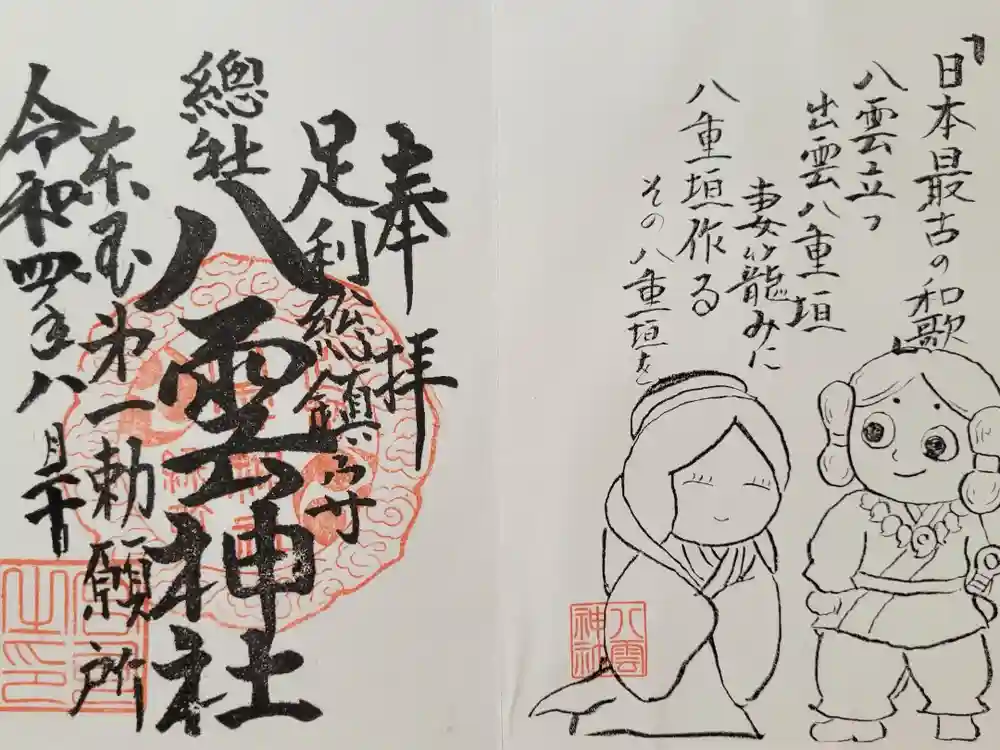 「日本最古の和歌」
八雲立つ
出雲八重垣
妻籠みに
八重垣作る
その八重垣を
八雲
神社
奉拝
足利総鎮守
總社
八雲神社
東国第一勅願所
令和四年八月二十日
宮司
之印